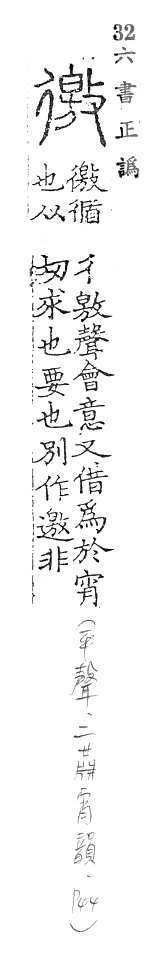 32 六書正譌
徼
徼循
也从
彳敫聲會意又借爲於宵
切求也要也別作邀非
(平聲、二蕭宵韻.P44)